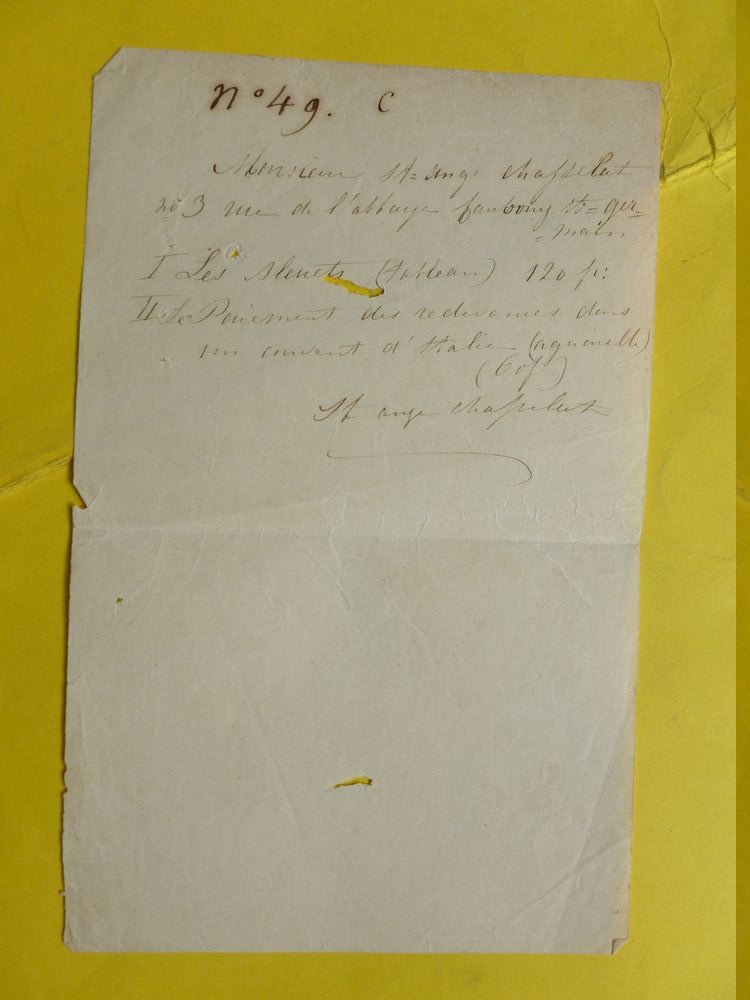 n° 49. C
Monsieur St= ange chasselat
no 3 rue de l'abbaye faubourg St= ger=
= main
I Les (tableau) 120 f:
II Le Paiement des redevances dans
un couvent d'Italie (aquarelle)
(60f)
St ange chasselat